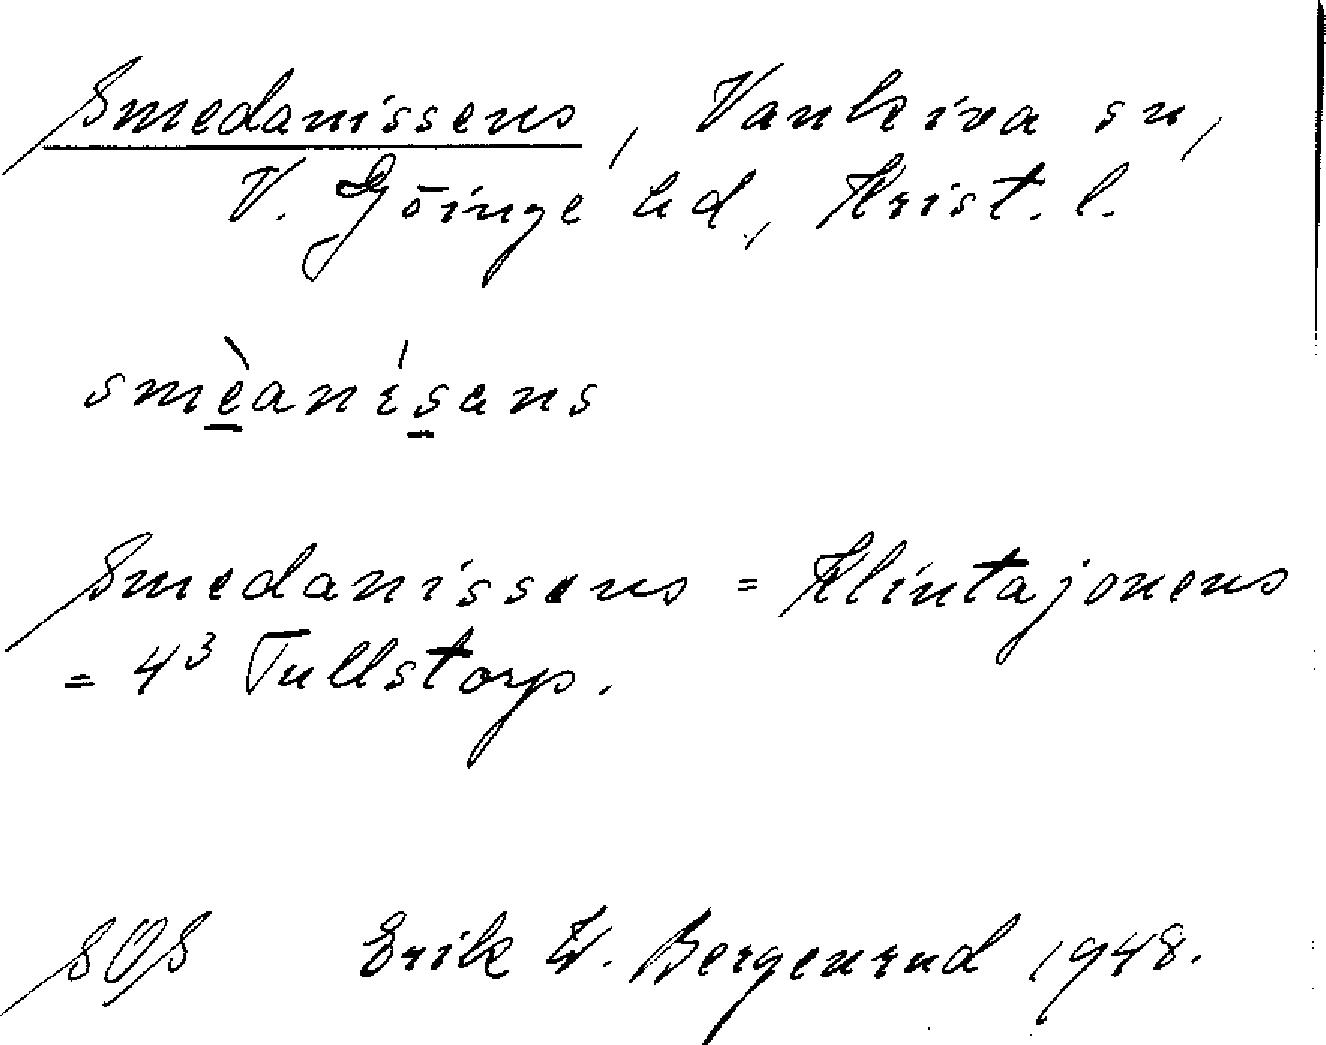 Smedanissens, Vankiva sn,
V. Göinge hd, Krist. l.
smèanísans
Smedanissens = Klintajonens
= 4³ Tullstorp.
SOS Erik W. Bergenrud 1948.